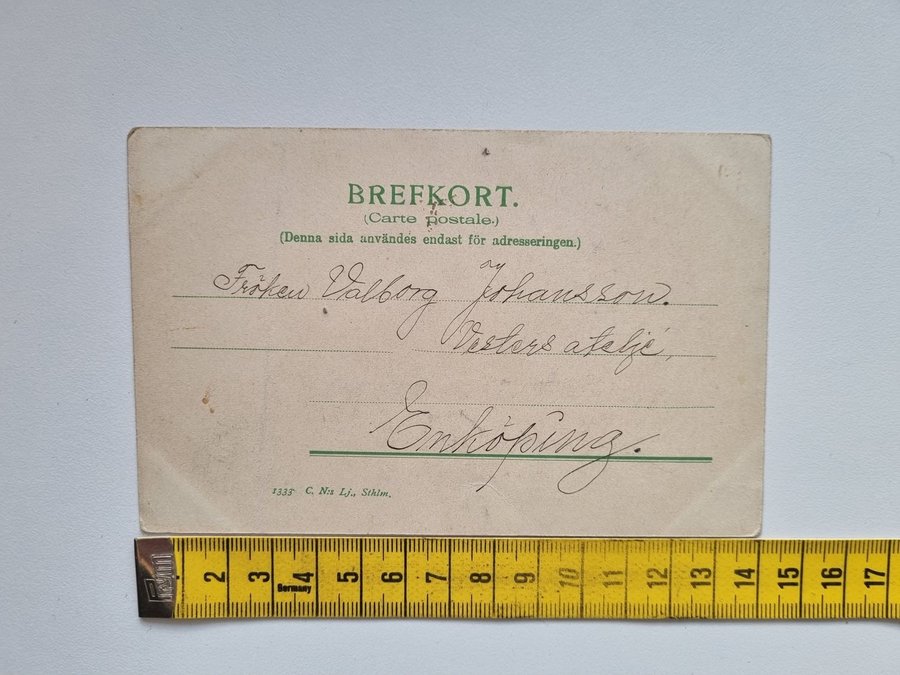 BREFKORT.
(Carte postale.)
(Denna sida användes endast för adresseringen.)
Fröken Valborg Johansson.
Vesters ateljé,
Enköping.
1333 C. N:s Lj., Sthlm.
2 3 4 5 6 7 8 9 10 11 12 13 14 15 16 17
Germany